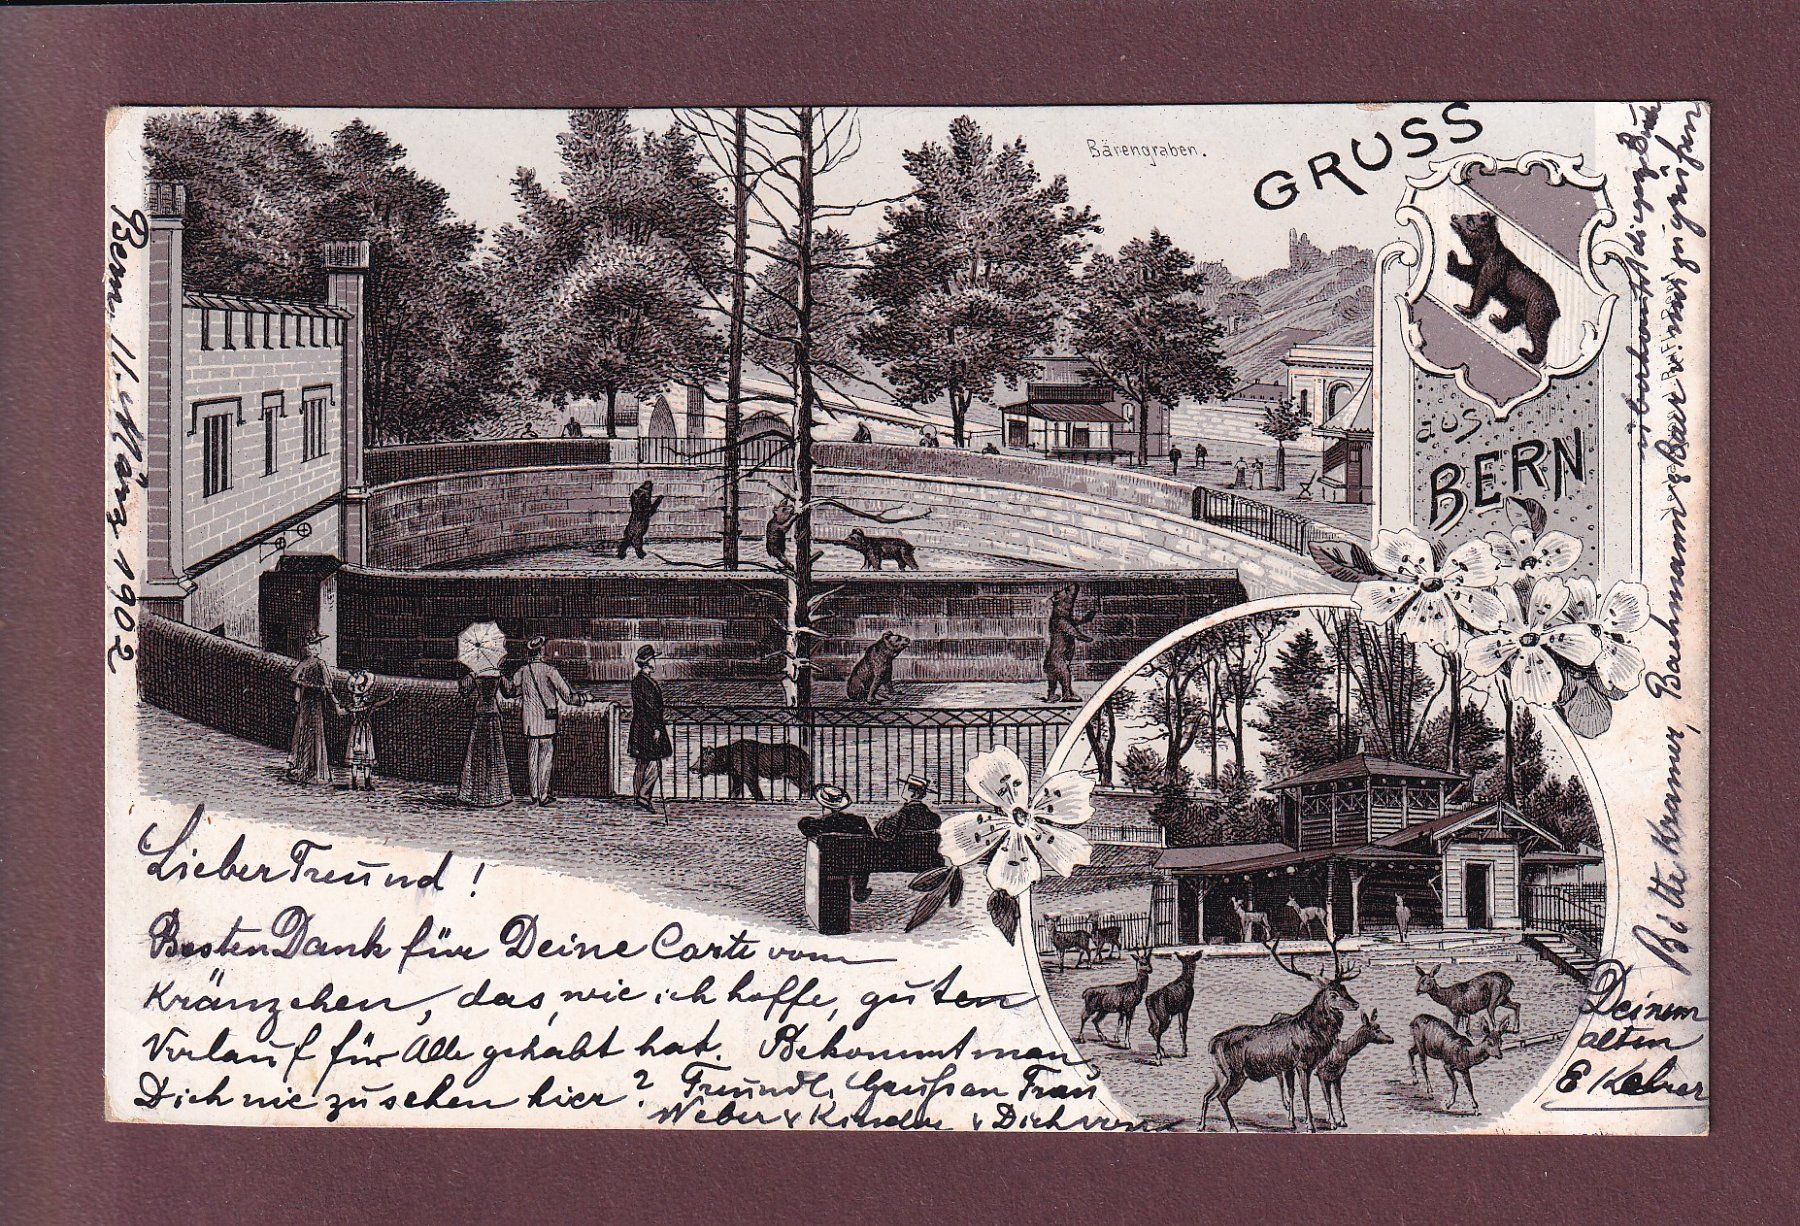 Bärengraben.
GRUSS
aus
BERN
Bern, 11. März 1902
Lieber Freund!
Besten Dank für Deine Carte vom
Kränzchen, das, wie ich hoffe, guten
Verlauf für Alle gehabt hat. Bekommt man
Dich nie zu sehen hier? Freundl. Gruß an Frau
Weber & Kinder & Dich von
Deinem
alten
E Kehrer
Bitte Kramer, Baehmann, Baer v. mir zu grüßen
überhaupt